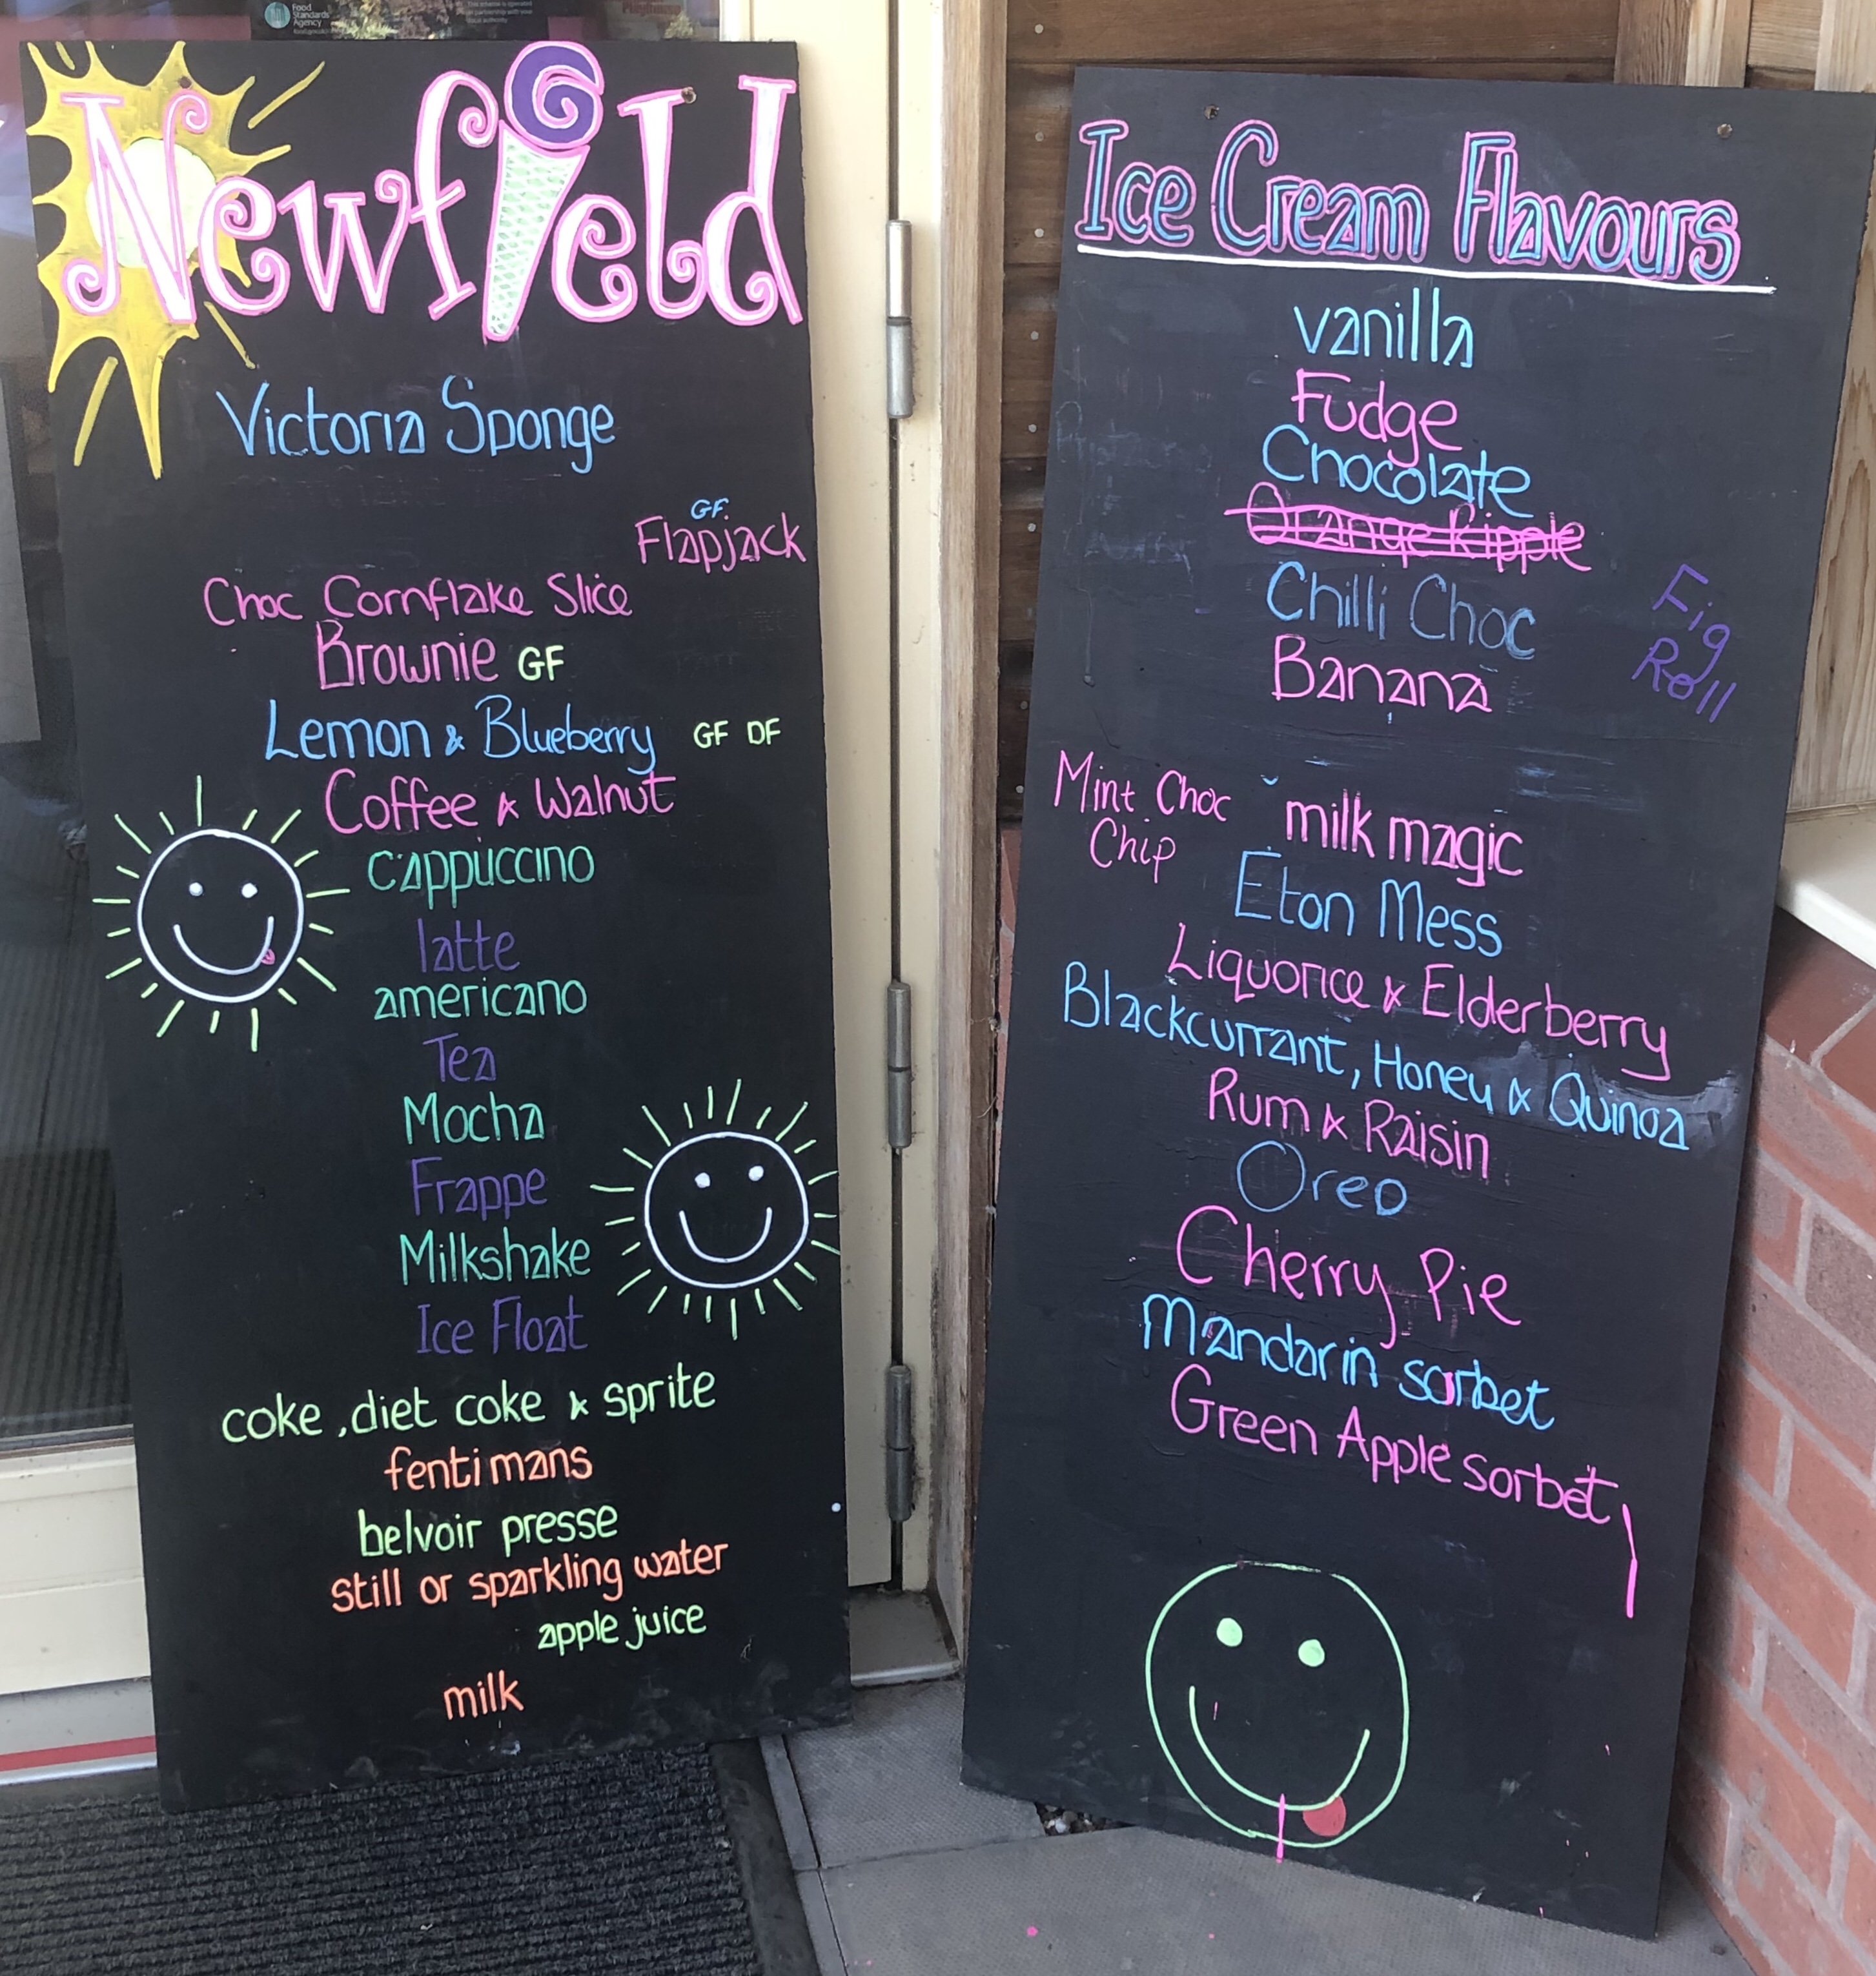 Food
Standards
Agency
Newfield
Victoria Sponge
GF
Flapjack
Choc Cornflake Slice
Brownie GF
Lemon & Blueberry GF DF
Coffee & Walnut
cappuccino
latte
americano
Tea
Mocha
Frappe
Milkshake
Ice Float
coke, diet coke & sprite
fentimans
belvoir presse
still or sparkling water
apple juice
milk
Ice Cream Flavours
vanilla
Fudge
Chocolate
Orange Ripple
Chilli Choc
Fig
Roll
Banana
Mint Choc
Chip
milk magic
Eton Mess
Liquorice & Elderberry
Blackcurrant, Honey & Quinoa
Rum & Raisin
Oreo
Cherry Pie
Mandarin sorbet
Green Apple sorbet